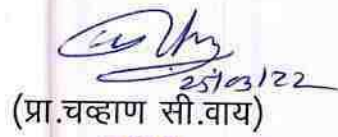 25/03/22
(प्रा.चव्हाण सी.वाय)